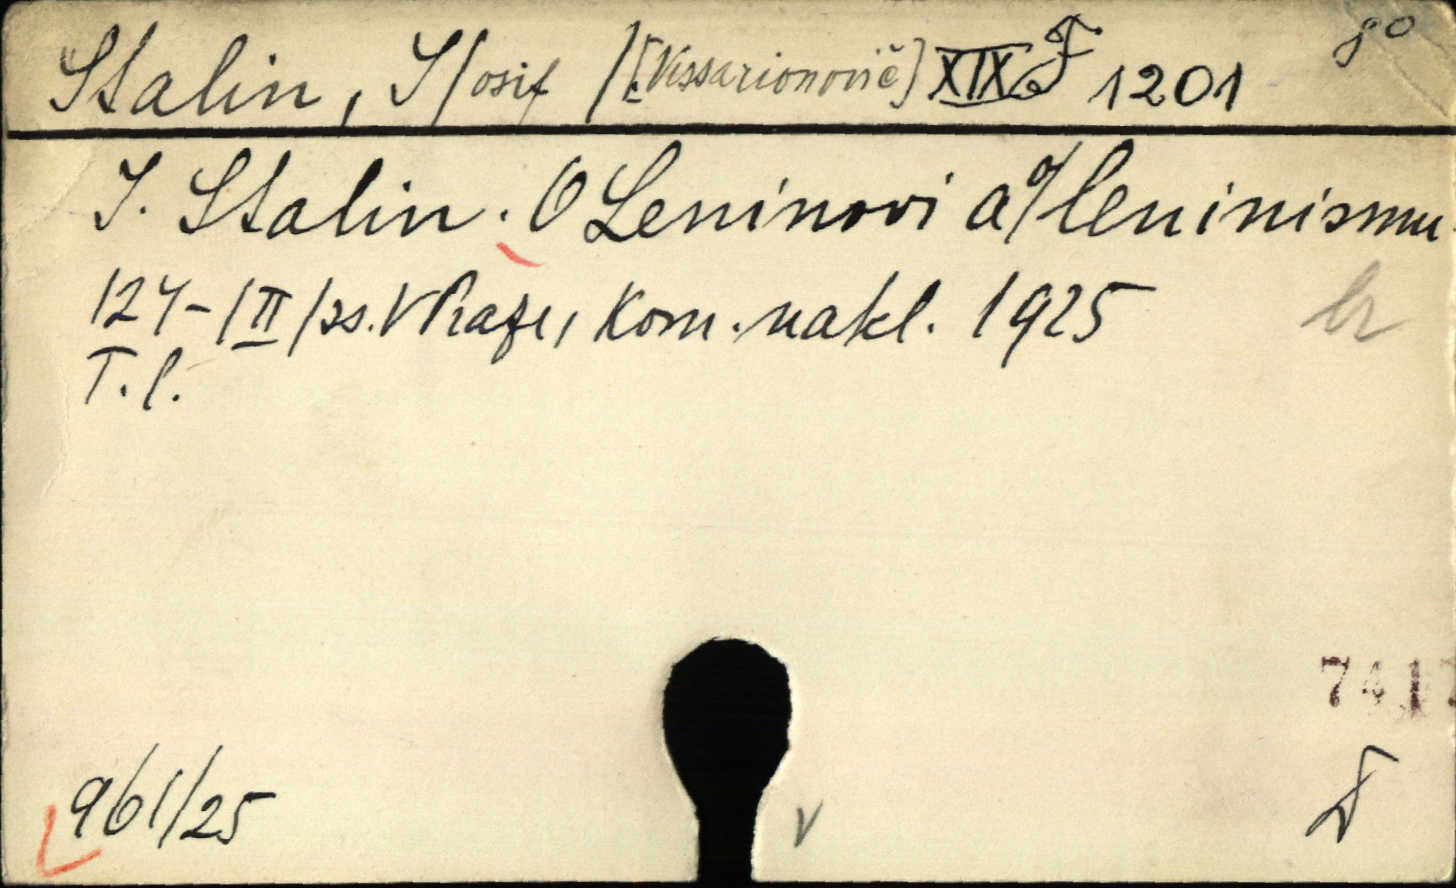 Stalin, J/osif/[Vissarionovič] XIX F 1201 8°
J. Stalin. O Leninovi a o/leninismu
124-/II/ss. V Praze, Kom. nakl. 1925
T. l.
741
961/25